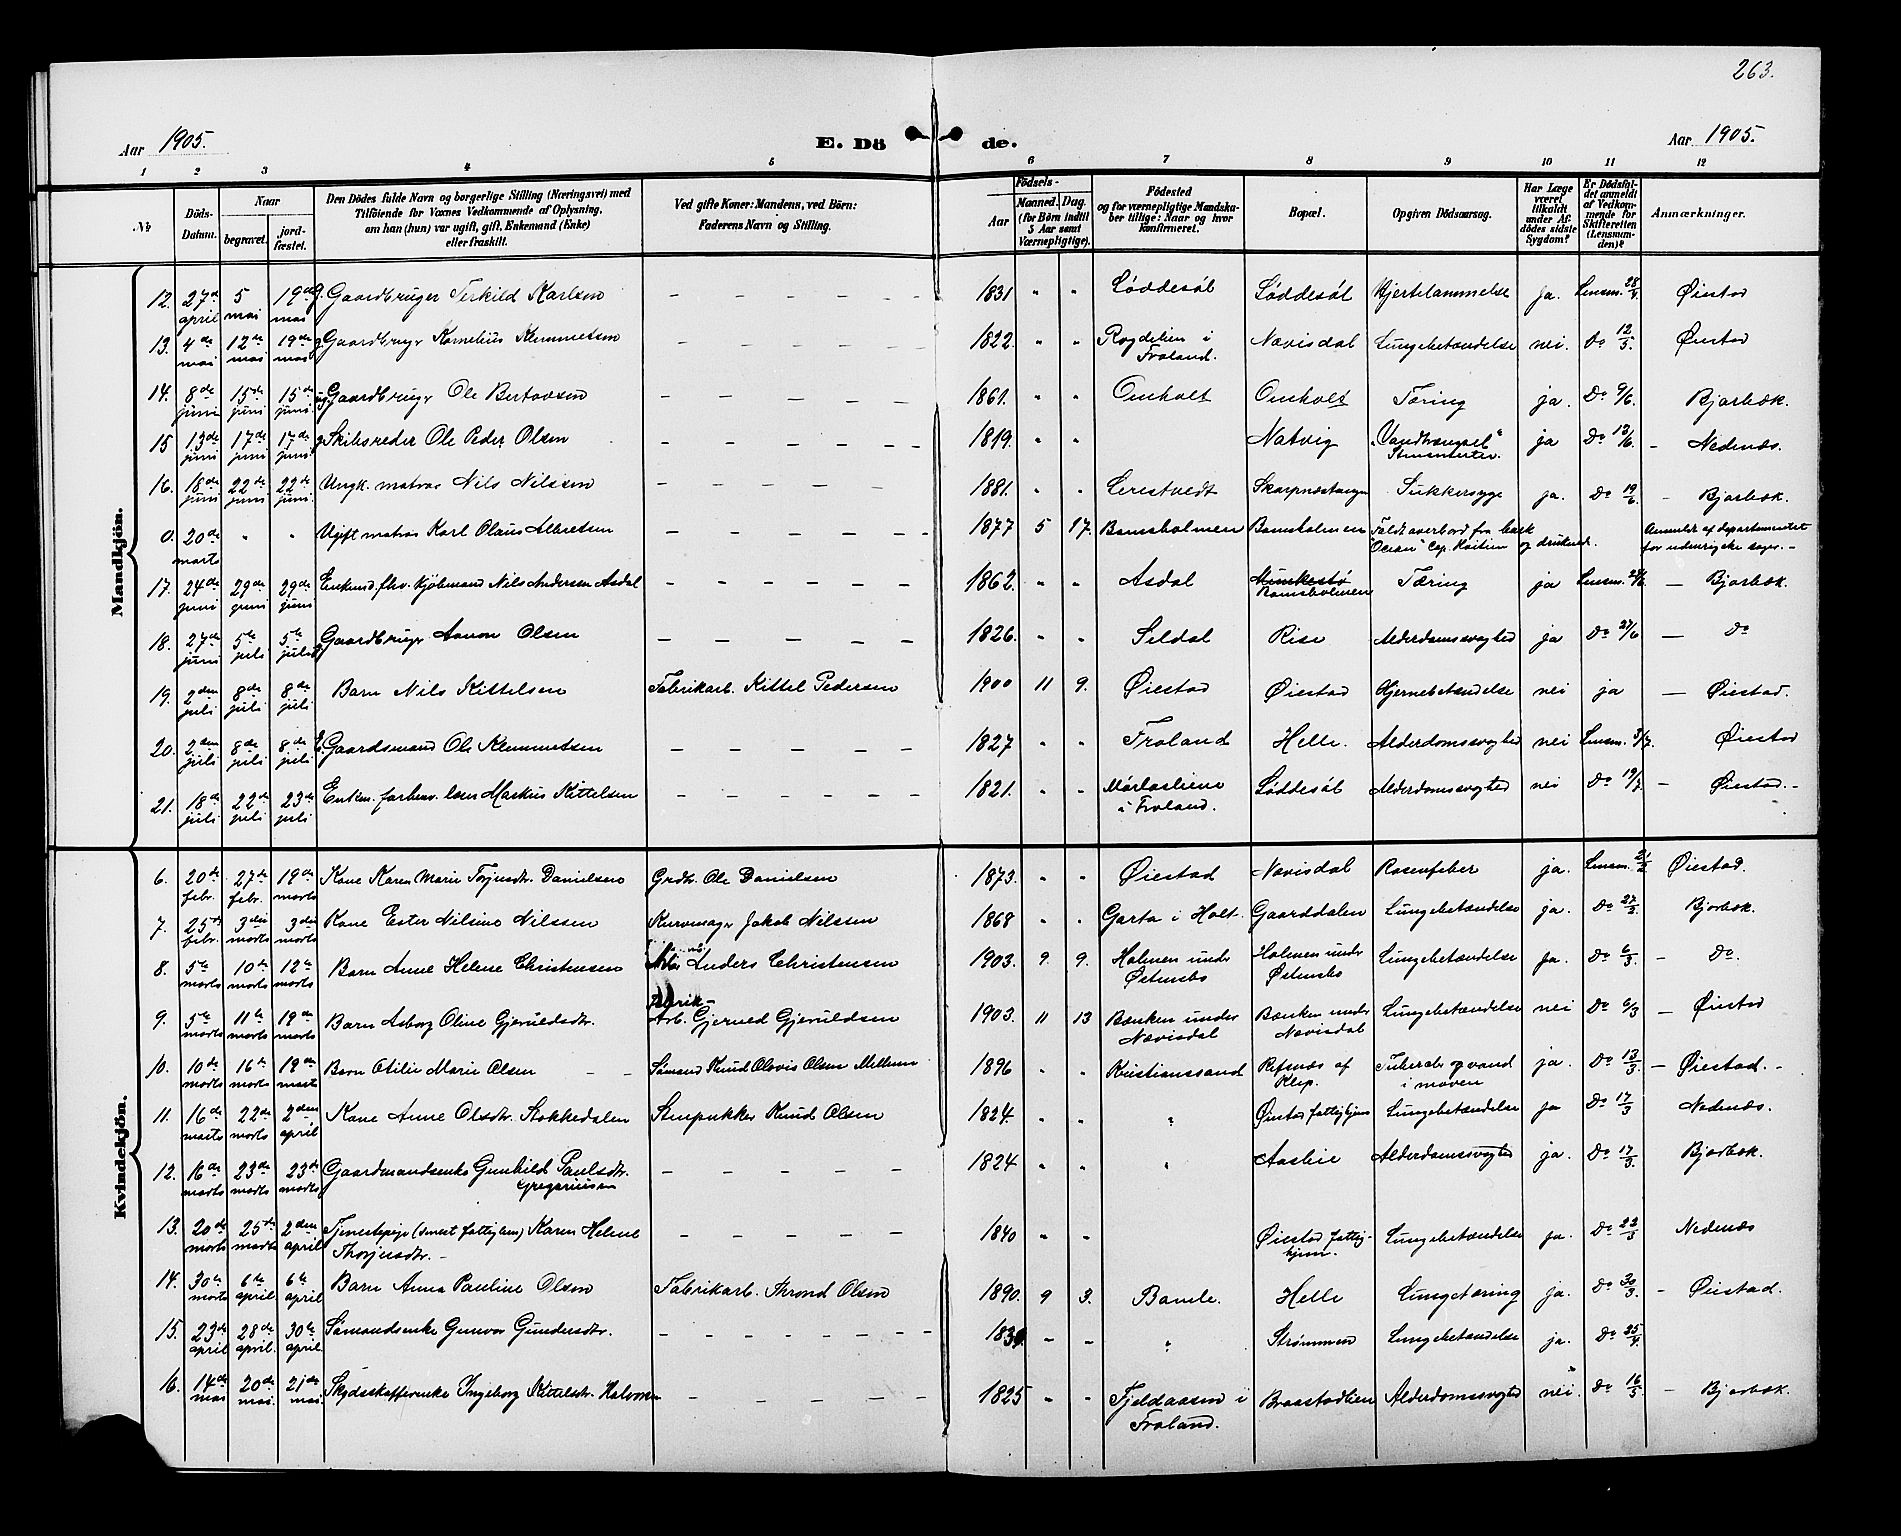 263.
Aar 1905.
E. Dö de.
Aar 1905.
1 2 3 4 5 6 7 8 9 10 11 12
№
Döds-Datum.
Naar
begravet.
jord-fæstet.
Den Dödes fulde Navn og borgerlige Stilling (Næringsvei) med
Tilföiende for Voxnes Vedkommende af Oplysning,
om han (hun) var ugift, gift, Enkemand (Enke)
eller fraskilt.
Ved gifte Koner: Mandens, ved Börn:
Faderens Navn og Stilling.
Födsels-
Aar
Maaned. Dag.
(for Börn indtil
5 Aar samt
Værnepligtige).
Födested
og for værnepligtige Mandska-
ber tillige: Naar og hvor
konfirmeret.
Bopæl.
Opgiven Dödsaarsag.
Har Læge
været
tilkaldt
under Af-
dødes sidste
Sygdom?
Er Dödsfal-
det anmeldt
af Vedkom-
mende for
Skifteretten
(Lensman-
den)?
Anmærkninger.
Mandkjön.
12. 27de april 5 mai 19de mai g. Gaardbruger Terkild Karlsen – – – – – – 1831 " " Løddesøl Løddesøl Hjertelammelse ja. Lensm. 28/4. Øiestad
13. 4de mai 12te mai 19de mai g. Gaardbrugr Kornelius Klemmetsen – – – – – – 1822. " " Bøgdelien i Froland. Nævisdal Lungebetændelse nei. Do 12/5. Øiestad
14. 8de juni 15de juni 15de juni ug. Gaardbrugr Ole Bertovsen – – – – – – 1861. " " Omholt Omholt Tæring ja. Do 9/6. Bjorbæk.
15 13de juni 17de juni 17de juni g. Skibsreder Ole Peder Olsen – – – – – – 1819. " " Natvig "Vandtrængsel" ja Do 13/6. – Nedenæs.
16. 18de juni 22de juni 22de juni Ungk. matros Nils Nilssen – – – – – – 1881. " " Lerestvedt Sukkersyge ja. Do 19/6 – Bjorbæk.
0. 20de marts " " Ugift matros Karl Olaus Albretsen 1877 5 17. Bomsholmen Bomsholmen Faldt overbord fra bark "Ocean" Cap. og druknede. Anmeldt af departementet for udenrigske sager. –
17. 24de juni 29de juni 29de juni Enkemd. fhv. Kjøbmand Nils Andersen Asdal – – – – – – 1862. " " Asdal Munkestø Bomsholmen Tæring ja Lensm. – Bjorbæk.
18. 27de juni 5te juli 5te juli g Gaardbrugr Aanon Olsen – – – – – – 1826. " " Seldal Rise Alderdomssvaghed ja Do 27/6 – Do
19. 2den juli 8de juli 8de juli Barn Nils Kittelsen Fabrikarb. Kittel Pedersen 1900 11 9. Øiestad Øiestad Hjernebetændelse nei ja – Øiestad.
20. 2den juli 8de juli 8de juli Gaardsmand Ole Klemmetsen – – – – – – 1827 " " Froland Helle. Alderdomssvaghed nei Lensm. 3/7. Øiestad
21. 18de juli 22de juli 23de juli Enkem. forhenv. Markus Kittelsen – – – – – – 1821. " " i Froland. Løddesøl Alderdomssvaghed nei Do 19/7 – Øiestad. –
Kvindekjön.
6. 20de febr. 27de febr. 19de marts Kone Karen Marie Torjusdtr. Danielsen Grdbr. Ole Danielsen 1873. " " Øiestad Nævisdal Rosenfeber ja. Lensm. 21/2 Øiestad.
7. 25de febr. 3die marts 3die marts Kone Ester Nilsine Nilssen Kurvmagr Jakob Nilssen 1868 " " Garta i Holt. Gaarddalen Lungebetændelse ja. Do 27/2. Bjorbæk.
8. 5te marts 10de marts 12te marts Barn Anne Helene Christensen Anders Christensen 1903. 9. 9. Holmen under Østensbø Holmen under Østensbø Lungebetændelse ja. Do 6/3. – Do.
9. 5te marts 11te marts 19de marts Barn Asborg Oline Gjeruldsdtr. Fabrik-Arb. Gjeruld Gjeruldsen 1903. 11 13 Bænken under Nævisdal Bænken under Nævisdal Lungebetændelse nei Do 6/3 – Øiestad
10. 10de marts 16de marts 19de marts Barn Otilie Marie Olsen – – Sømand Knud Olovis Olsen 1896 " " Kristianssand Refsnæs af Klep. Tuberculos og vand i maven ja. Do 13/3. – Øiestad. –
11. 16de marts 22de marts 2den april Kone Anne Olsdtr. Stokkedalen Stenpukker Knud Olsen 1824. " " " Øiestad fattighjem Lungebetændelse ja Do 17/3 Nedenæs.
12. 16de marts 23de marts 23de marts Gaardmandsenke Gunhild Paulsdtr. Gregoriusen – – – – – – 1824 " " " Aaslie Alderdomssvaghed ja. Do 17/3. Bjorbæk.
13. 20de marts 25de marts 2den april Tjenestepige (senest fattiglem) Karen Helene Thorjusdtr. – – – – – – – 1840 " " Øiestad fattig-hjem. Lungebetændelse ja. Do 22/3 Nedenæs
14. 30te marts 6te april 6te april Barn Anna Pauline Olsen Fabrikarb. Thrond Olsen 1890. 9 3. Bamle. Helle Lungetæring ja. Do 30/3. – Øiestad.
15. 23de april 28de april. 30te april. Sømandsenke Gunvor Gundersdtr. – – – – – – – – – " Strømmen Lungebetændelse ja. Do 25/4
16. 14de mai 20de mai. 21de mai. Skydsskafferenke Ingeborg Kittelsdtr. Halvorsen – – – – 1825 " " Fjeldaasen i Froland. Braastadlien Alderdomssvaghed nei. Do 16/5 – Bjorbæk.